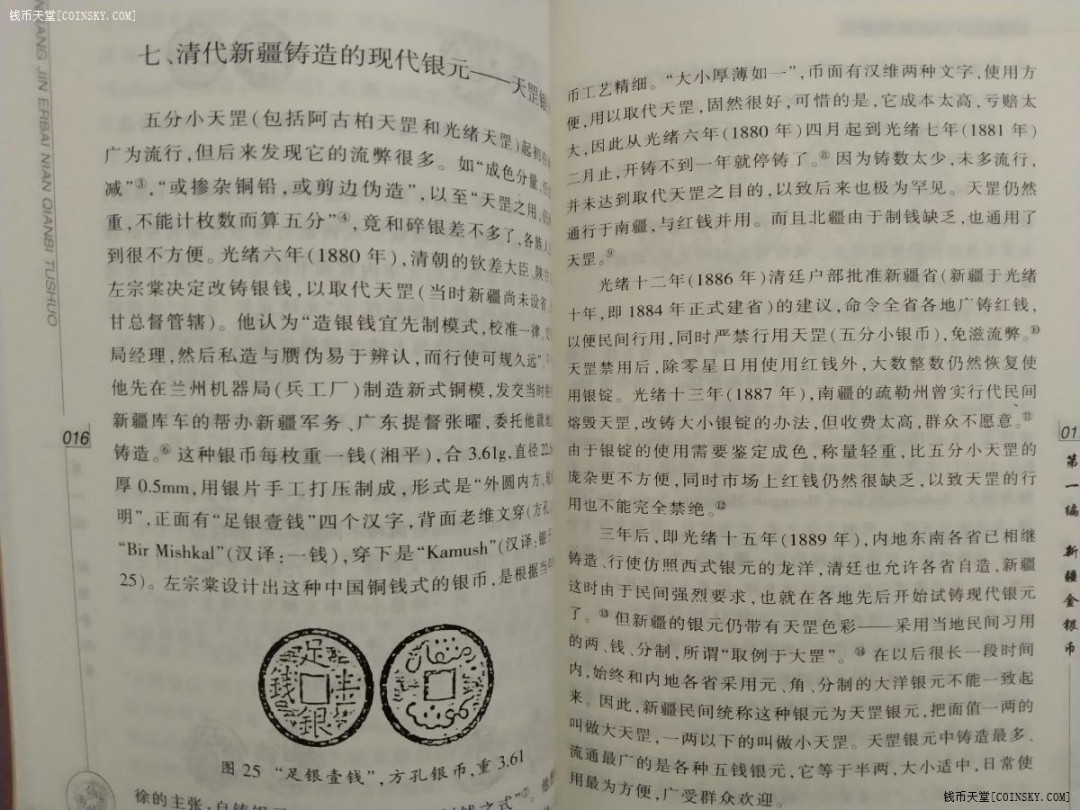 钱币天堂[COINSKY.COM]
JIANG JIN ERBAI NIAN QIANBI TUSHUO
七、清代新疆铸造的现代银元——天罡银
五分小天罡(包括阿古柏天罡和光绪天罡)起初
广为流行,但后来发现它的流弊很多。如“成色分量,
减”③,“或掺杂铜铅,或剪边伪造”,以至“天罡之用,
重,不能计枚数而算五分”④,竟和碎银差不多了,各族人
到很不方便。光绪六年(1880 年),清朝的钦差大臣、陕
左宗棠决定改铸银钱,以取代天罡(当时新疆尚未设省,
甘总督管辖)。他认为“造银钱宜先制模式,校准一律,
局经理,然后私造与赝伪易于辨认,而行使可规久远”
他先在兰州机器局(兵工厂)制造新式铜模,发交当时
新疆库车的帮办新疆军务、广东提督张曜,委托他就地
铸造。⑥ 这种银币每枚重一钱(湘平),合 3.61g,直径
厚 0.5mm,用银片手工打压制成,形式是“外圆内方,
明”,正面有“足银壹钱”四个汉字,背面老维文穿(方孔
“Bir Mishkal”(汉译:一钱),穿下是“Kamush”(汉译:银
25)。左宗棠设计出这种中国铜钱式的银币,是根据当
016
足
钱 壹
银
图 25 “足银壹钱”,方孔银币,重 3.61
徐的主张,自铸银
币工艺精细。“大小厚薄如一”,币面有汉维两种文字,使用方
便,用以取代天罡,固然很好,可惜的是,它成本太高,亏赔太
大,因此从光绪六年(1880 年)四月起到光绪七年(1881 年)
二月止,开铸不到一年就停铸了。⑧ 因为铸数太少,未多流行,
并未达到取代天罡之目的,以致后来也极为罕见。天罡仍然
通行于南疆,与红钱并用。而且北疆由于制钱缺乏,也通用了
天罡。⑨
光绪十二年(1886 年)清廷户部批准新疆省(新疆于光绪
十年,即 1884 年正式建省)的建议,命令全省各地广铸红钱,
以便民间行用,同时严禁行用天罡(五分小银币),免滋流弊。⑩
天罡禁用后,除零星日用使用红钱外,大数整数仍然恢复使
用银锭。光绪十三年(1887 年),南疆的疏勒州曾实行代民间
熔毁天罡,改铸大小银锭的办法,但收费太高,群众不愿意。⑪
由于银锭的使用需要鉴定成色,称量轻重,比五分小天罡的
庞杂更不方便,同时市场上红钱仍然很缺乏,以致天罡的行
用也不能完全禁绝。⑫
三年后,即光绪十五年(1889 年),内地东南各省已相继
铸造、行使仿照西式银元的龙洋,清廷也允许各省自造,新疆
这时由于民间强烈要求,也就在各地先后开始试铸现代银元
了。⑬ 但新疆的银元仍带有天罡色彩——采用当地民间习用
的两、钱、分制,所谓“取例于大罡”。⑭ 在以后很长一段时间
内,始终和内地各省采用元、角、分制的大洋银元不能一致起
来。因此,新疆民间统称这种银元为天罡银元,把面值一两的
叫做大天罡,一两以下的叫做小天罡。天罡银元中铸造最多、
流通最广的是各种五钱银元,它等于半两,大小适中,日常使
用最为方便,广受群众欢迎。
01
第一编 新疆金银币
钱币天堂[COINSKY.COM]